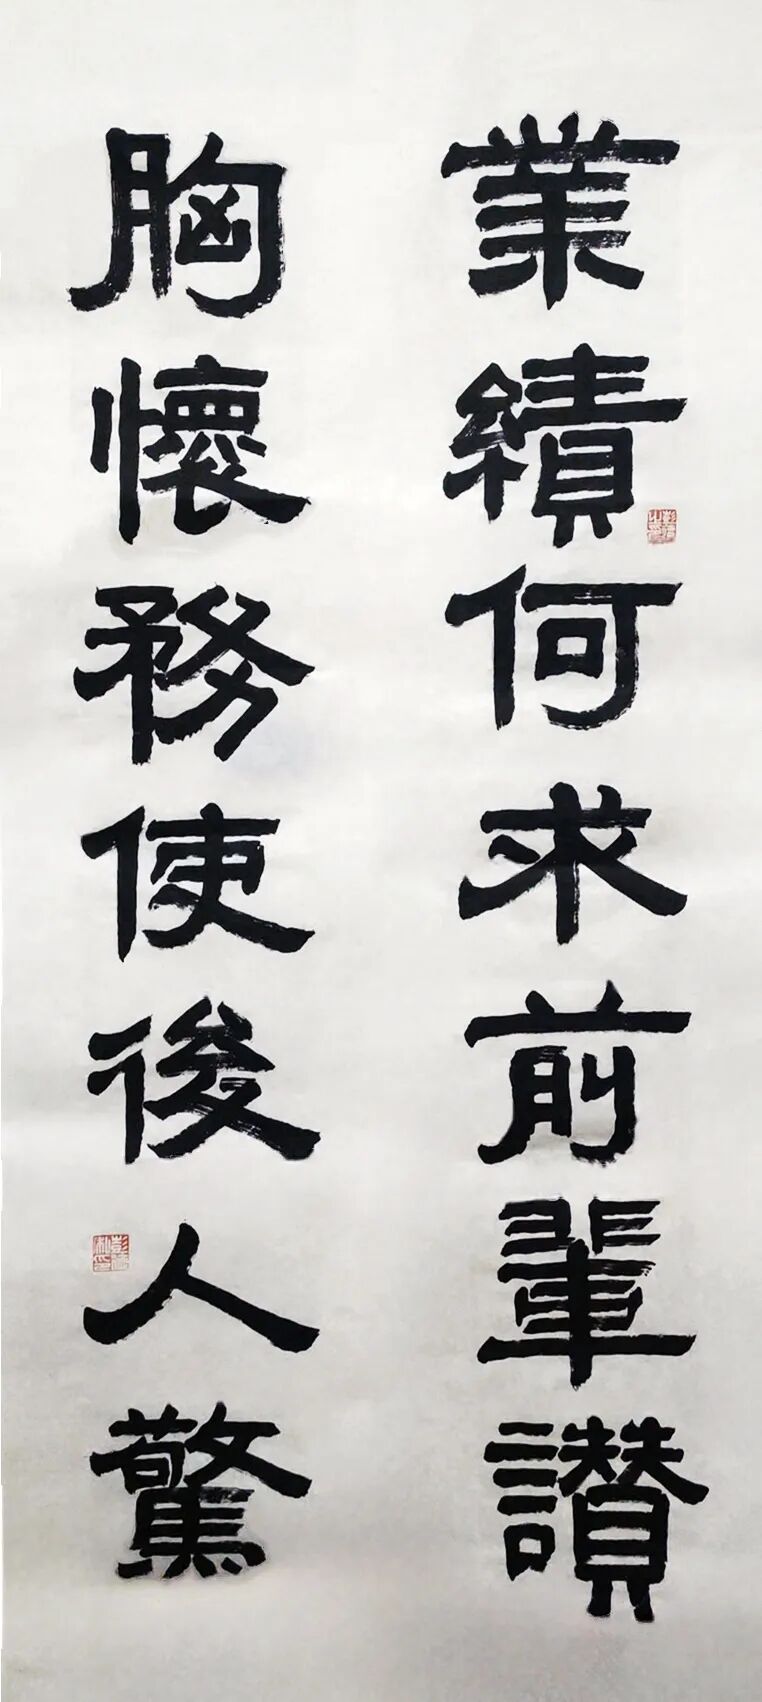 業績何求前輩讚
胸懷務使後人驚